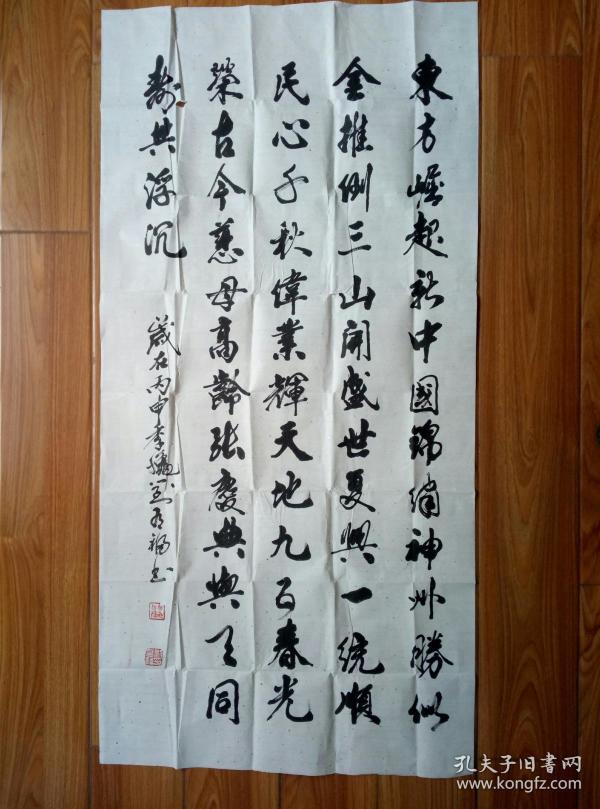 東方崛起新中國錦繡神州勝似
金推倒三山開盛世夏興一統順
民心千秋偉業輝天地九百春光
榮古今慈母高齡張慶典與天同
壽共浮沉
歲在丙申季
书
孔夫子旧书网
www.kongfz.com